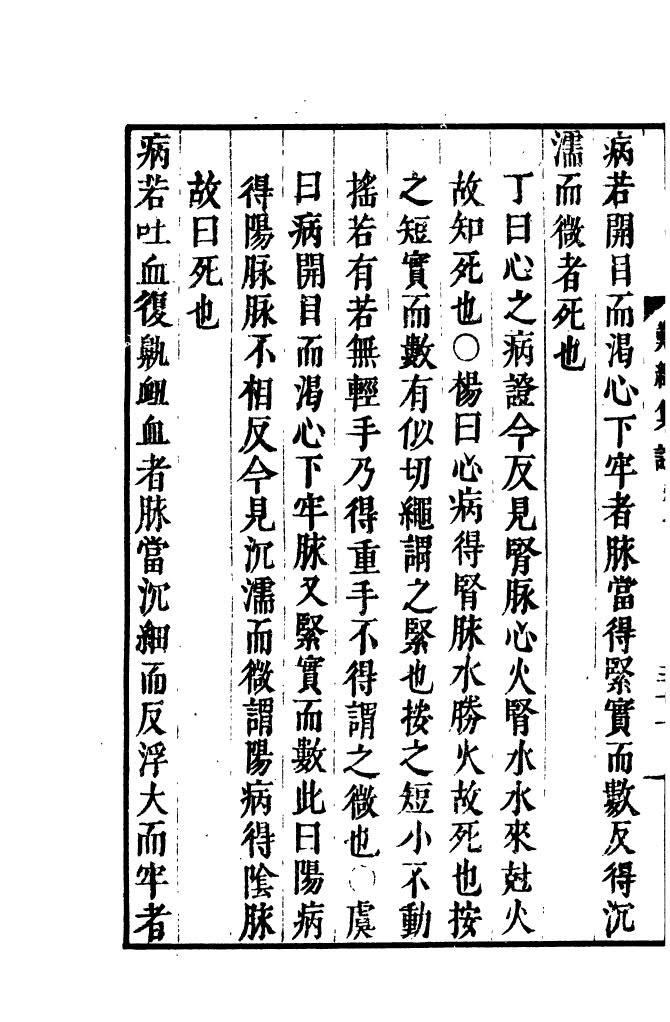 難經集註
病若開目而渴心下牢者脉當得緊實而數反得沉
濡而微者死也
丁曰心之病證今反見腎脉心火腎水水來尅火
故知死也○楊曰心病得腎脉水勝火故死也按
之短實而數有似切繩謂之緊也按之短小不動
搖若有若無輕手乃得重手不得謂之微也○虞
曰病開目而渴心下牢脉又緊實而數此曰陽病
得陽脉脉不相反今見沉濡而微謂陽病得陰脉
故曰死也
病若吐血復鼽衄血者脉當沉細而反浮大而牢者